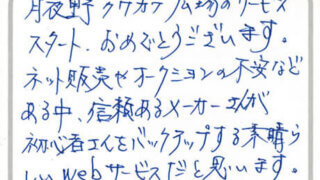 月夜野クワガタ工場のサービス
スタート、おめでとうございます。
ネット販売やオークションの不安など
ある中、信頼あるメーカーさんが
初心者さんをバックアップする素晴ら
しいWebサービスだと思います。